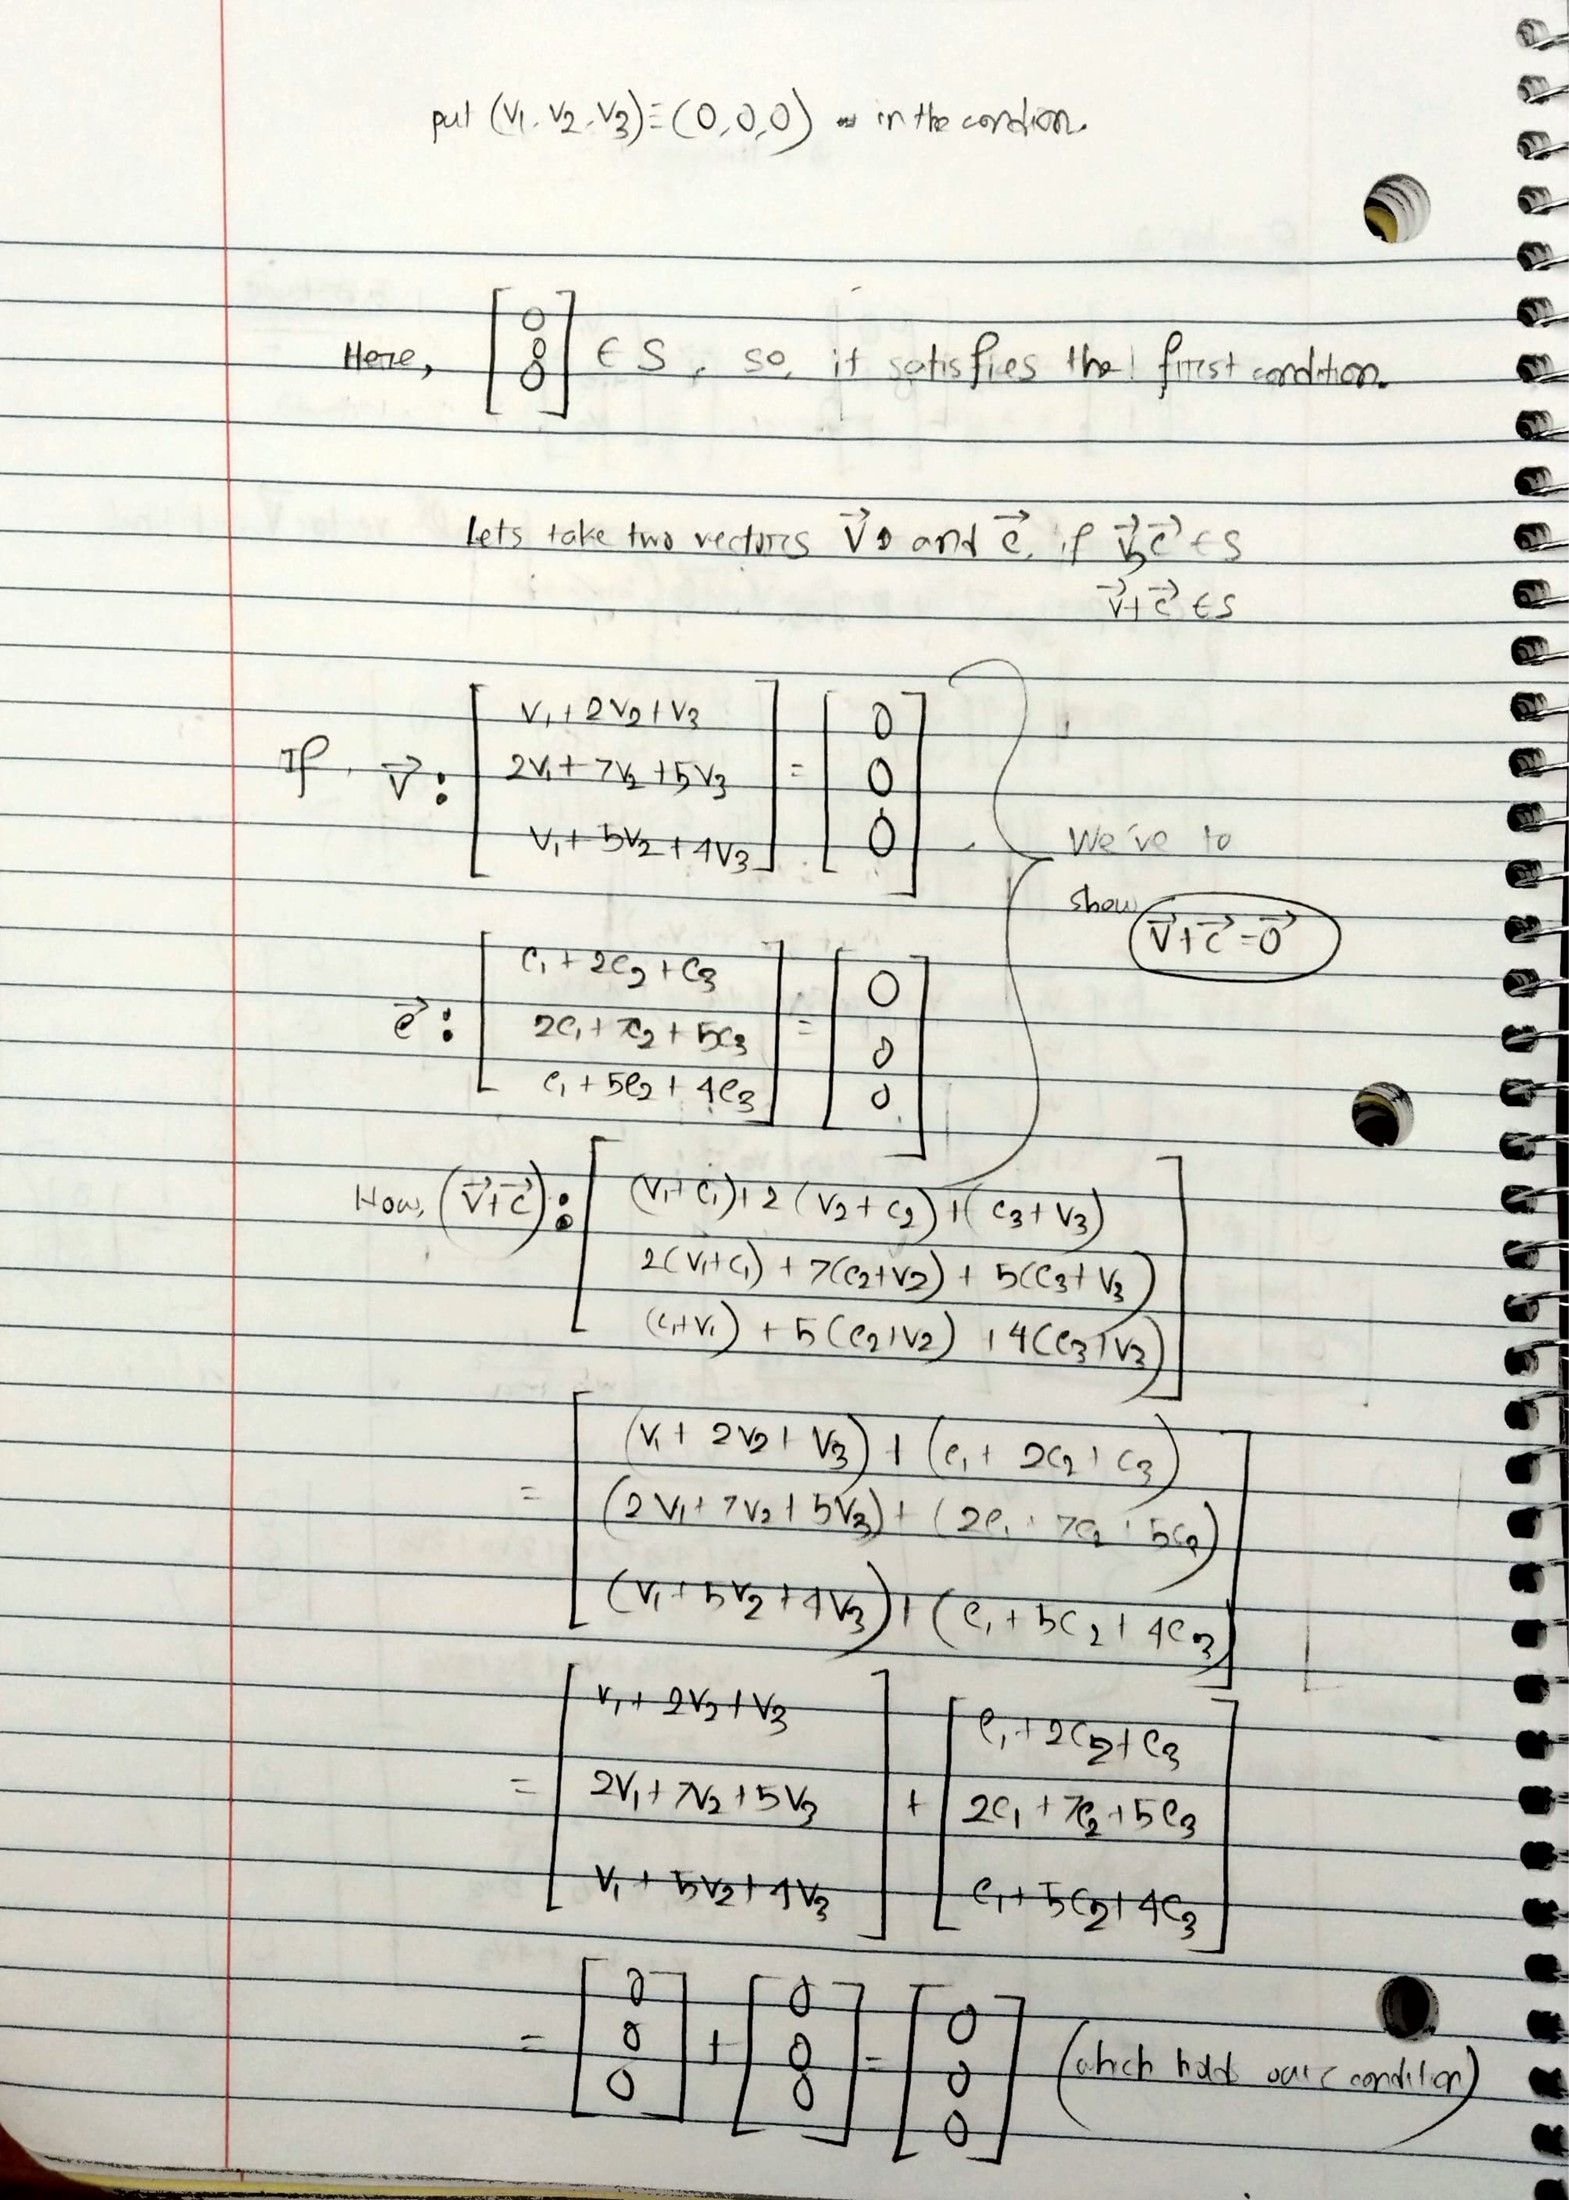 put (v₁, v₂, v₃) = (0,0,0) in the condion.
Here, [0 0 0] ∈ S, so, it satisfies the first condition.
Lets take two vectors v⃗ and c⃗, if v⃗, c⃗ ∈ S
v⃗+c⃗ ∈ S
If, v⃗ : [v₁+2v₂+v₃
2v₁+7v₂+5v₃
v₁+5v₂+4v₃] = [0 0 0]
We've to
show v⃗+c⃗=0⃗
c⃗ : [c₁+2c₂+c₃
2c₁+7c₂+5c₃
c₁+5c₂+4c₃] = [0 0 0]
Now, (v⃗+c⃗) : [(v₁+c₁)+2(v₂+c₂)+(c₃+v₃)
2(v₁+c₁)+7(c₂+v₂)+5(c₃+v₃)
(c₁+v₁)+5(c₂+v₂)+4(c₃+v₃)]
= [(v₁+2v₂+v₃)+(c₁+2c₂+c₃)
(2v₁+7v₂+5v₃)+(2c₁+7c₂+5c₃)
(v₁+5v₂+4v₃)+(c₁+5c₂+4c₃)]
= [v₁+2v₂+v₃ + [c₁+2c₂+c₃
2v₁+7v₂+5v₃ 2c₁+7c₂+5c₃
v₁+5v₂+4v₃] c₁+5c₂+4c₃]
= [0 0 0] + [0 0 0] = [0 0 0] (which holds our condition)